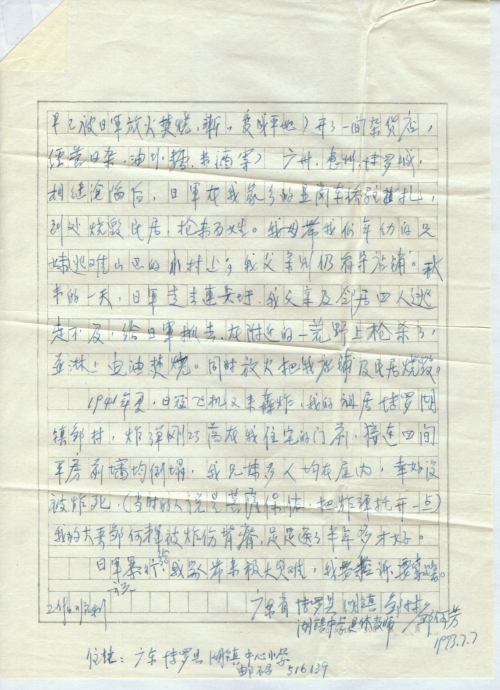 早已被日军放火焚烧，渐。变成平地）开了一间杂货店，
经营日杂、油小糖、书酒等）广州、惠州、博罗城，
相继沦陷后，日军在我家乡的驻扎，
到处烧毁民居，抢杀百姓。我母带我们年幼的兄
妹逃难山区的小村上，我父亲则仍留守店铺。秋
末的一天，日军走过，我父亲及邻居四人逃
走不及，给日军抓去，在附近的一荒野上枪杀了，
并淋上电油焚烧。同时放火把我店铺及民居烧毁。
1941年夏，日寇飞机又来轰炸，我的祖居博罗湖
镇邹村，炸弹刚巧落在我住宅的门前，接连四间
平房前墙均倒塌，我兄妹多人均在屋内，幸好没
被炸死，（当时的人说是菩萨保佑，把炸弹托开一点）
我的大哥邹何祥被炸伤臂，足足医了半年多才好。
日军暴行给我家带来极大灾难，我要控诉，要索赔。
广东省博罗县湖镇邹村
湖镇中学退休教师 邹何芳
1993.7.7
住址：广东博罗县湖镇中心小学
邮编号 516139